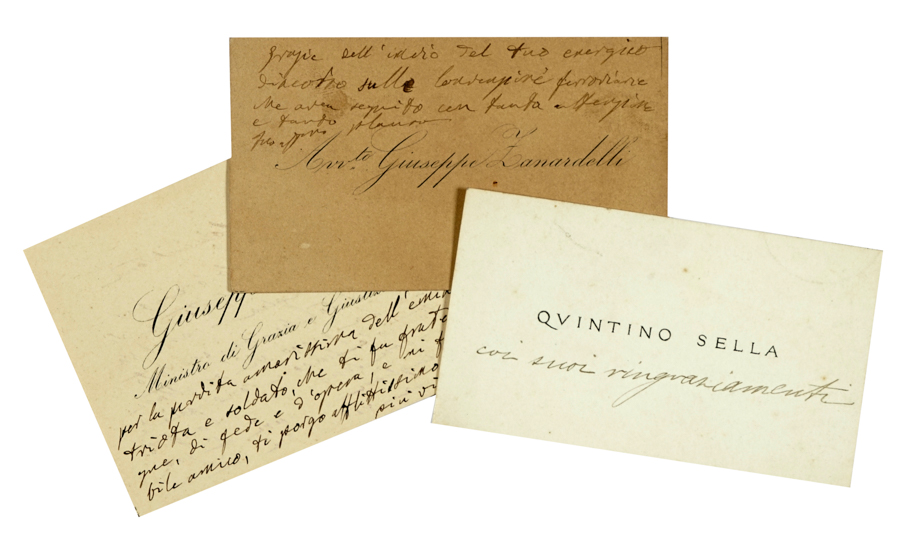 Grazie dell'invio del tuo energico
discorso sulle convenzioni ferroviarie
che avea seguito con tanta attenzione
e tanto plauso
Avv.to Giuseppe Zanardelli
Giusepp
Ministro di Grazia e Giustiz
per la perdita amarissima dell'esimi
triota e soldato, che ti fu frate
gue, di fede e d'opera, e mi f
bile amico, ti porgo afflittissimo
più vi
QVINTINO SELLA
coi suoi ringraziamenti